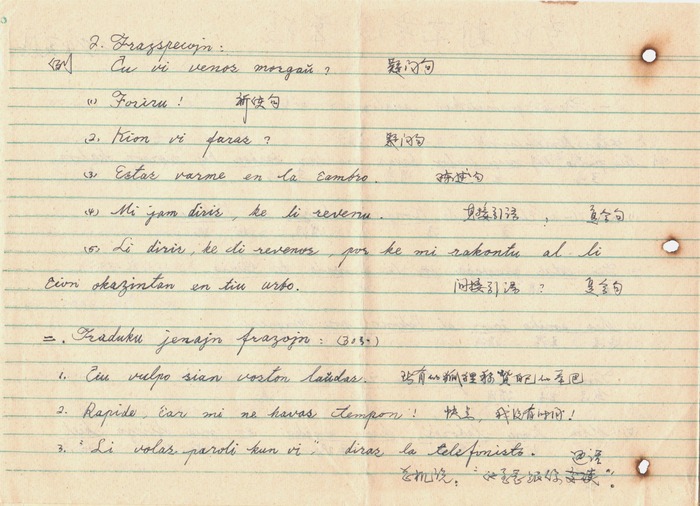 2. Frazspecojn:
例 Ĉu vi venos morgaŭ? 疑问句
(1) Foriru! 祈使句
(2) Kion vi faras? 疑问句
(3) Estas varme en la ĉambro. 陈述句
(4) Mi jam diris, ke li revenu. 直接引语, 复合句
(5) Li diris, ke li revenos, por ke mi rakontu al li
ĉion okazintan en tiu urbo. 间接引语? 复合句
二. Traduku jenajn frazojn:
1. Ĉiu vulpo sian voston laŭdas. 所有的狐狸称赞自己的尾巴
2. Rapide, ĉar mi ne havas tempon! 快点, 我没有时间!
3. "Li volas paroli kun vi," diras la telefonisto. 通话
总机说: